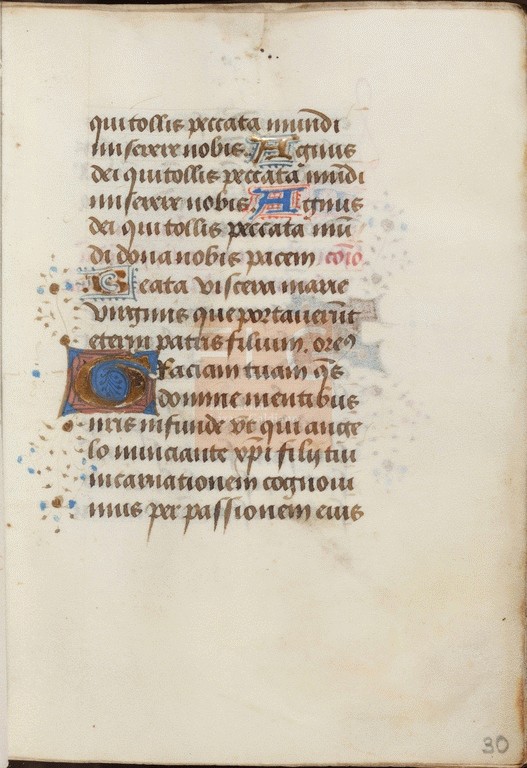 qui tollis peccata mundi
miserere nobis. Agnus
dei qui tollis peccata mūdi
miserere nobis. Agnus
dei qui tollis peccata mū
di dona nobis pacem cōio
Beata viscera marie
virginis que portauerūt
eterni patris filium. oreꝰ
Graciam tuam q̄s
domine mentibus
nr̄is infunde vt qui ange
lo nunciante xp̄i filij tui
incarnationem cognoui
mus per passionem eius
30